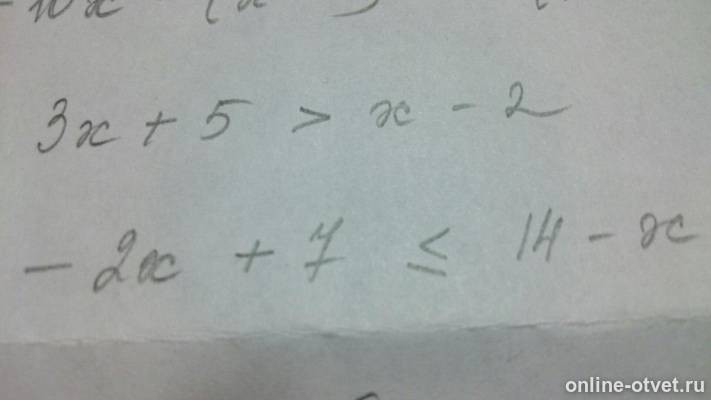 3x + 5 > x - 2
- 2x + 7 ≤ 14 - x
online-otvet.ru